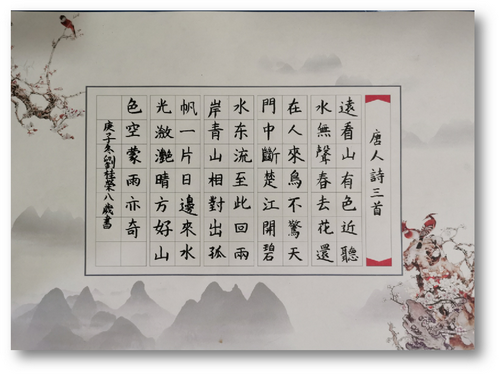 唐人詩三首
遠看山有色近聽
水無聲春去花還
在人來鳥不驚天
門中斷楚江開碧
水东流至此回兩
岸青山相對出孤
帆一片日邊來水
光潋灩晴方好山
色空蒙雨亦奇
庚子冬劉桂榮八歲書